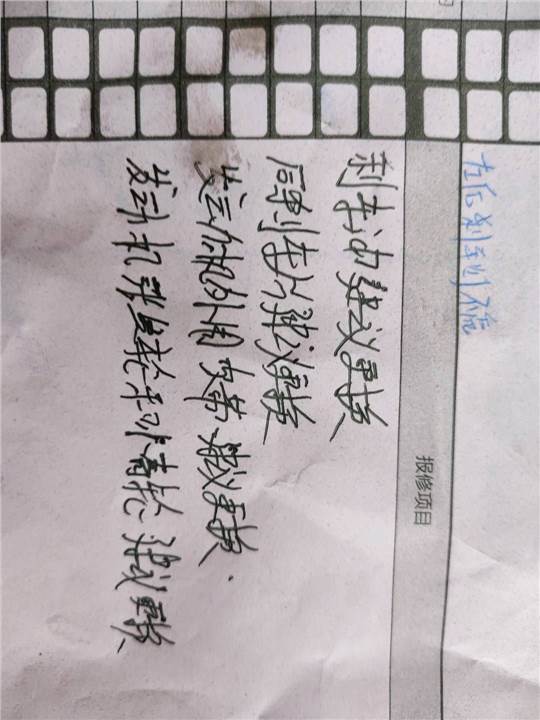 左后刹车
报修项目
刹车油建议更换
后刹车片建议更换
发动机外围皮带建议更换
发动机张紧轮和惰轮建议更换